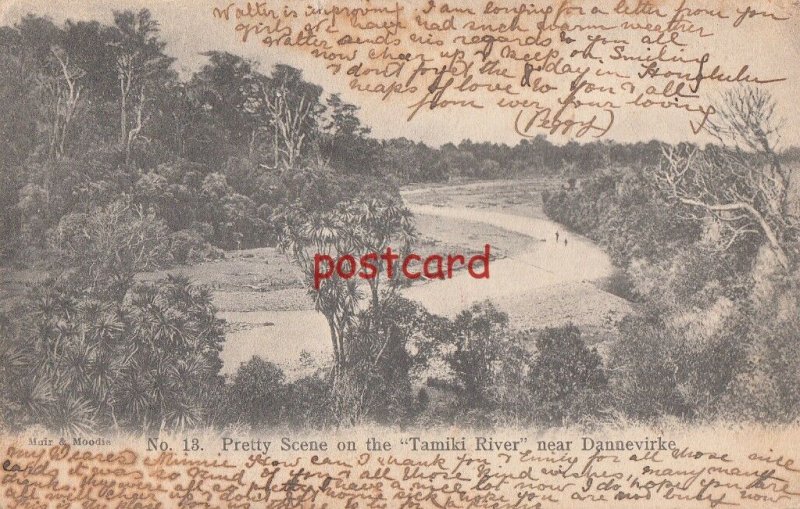 Walter is improving I am longing for a letter from you
girls We have had such warm weather
Walter sends his regards to you all
now cheer up & keep on Smiling
& don't forget the 8 day in Honolulu
heaps of love to you & all
from ever your loving
(Peggy)
postcard
Muir & Moodie No. 13. Pretty Scene on the "Tamiki River" near Dannevirke
My Dearest Minnie How can I thank you & Emily for all those nice
cards it was so kind of you & for all those kind wishes, many many
thanks, they were all so pretty I have a nice lot now I do hope you
and will cheer up & don't get home sick I hope you are not busy now
this is the place for